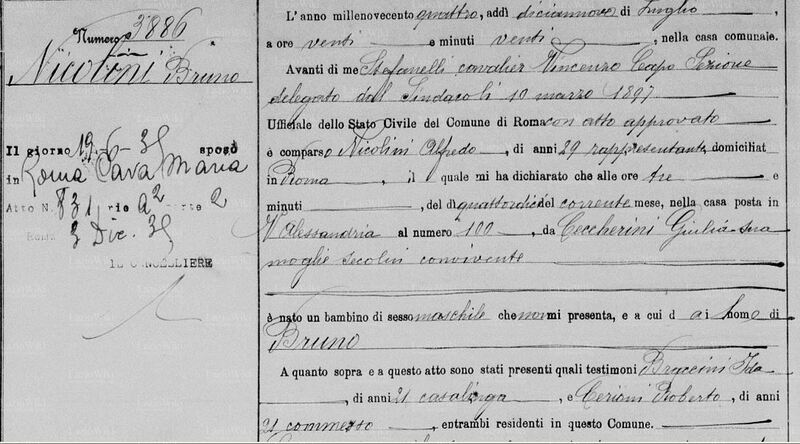 Numero 3886
Nicolini Bruno
Il giorno 19-6-35 sposò
in Roma Cava Maria
Atto N. 831 rie A2 arte 2
Roma 3 Dic. 35
IL CANCELLIERE
L'anno millenovecento quattro, addì diciannove di Luglio
a ore venti e minuti venti, nella casa comunale.
Avanti di me Stefanelli cavalier Vincenzo Capo Sezione
delegato dal Sindaco li 10 marzo 1897
Uffiziale dello Stato Civile del Comune di Roma con atto approvato
è comparso Nicolini Alfredo, di anni 29 rappresentante, domiciliat
in Roma, il quale mi ha dichiarato che alle ore tre e
minuti, del dì quattordici del corrente mese, nella casa posta in
V. Alessandria al numero 100, da Ceccherini Giulia sua
moglie secolui convivente
è nato un bambino di sesso maschile che non mi presenta, e a cui d a i l nome di
Bruno
A quanto sopra e a questo atto sono stati presenti quali testimoni Braccini Ida
, di anni 21 casalinga, e Cerioni Roberto, di anni
21 commesso, entrambi residenti in questo Comune.